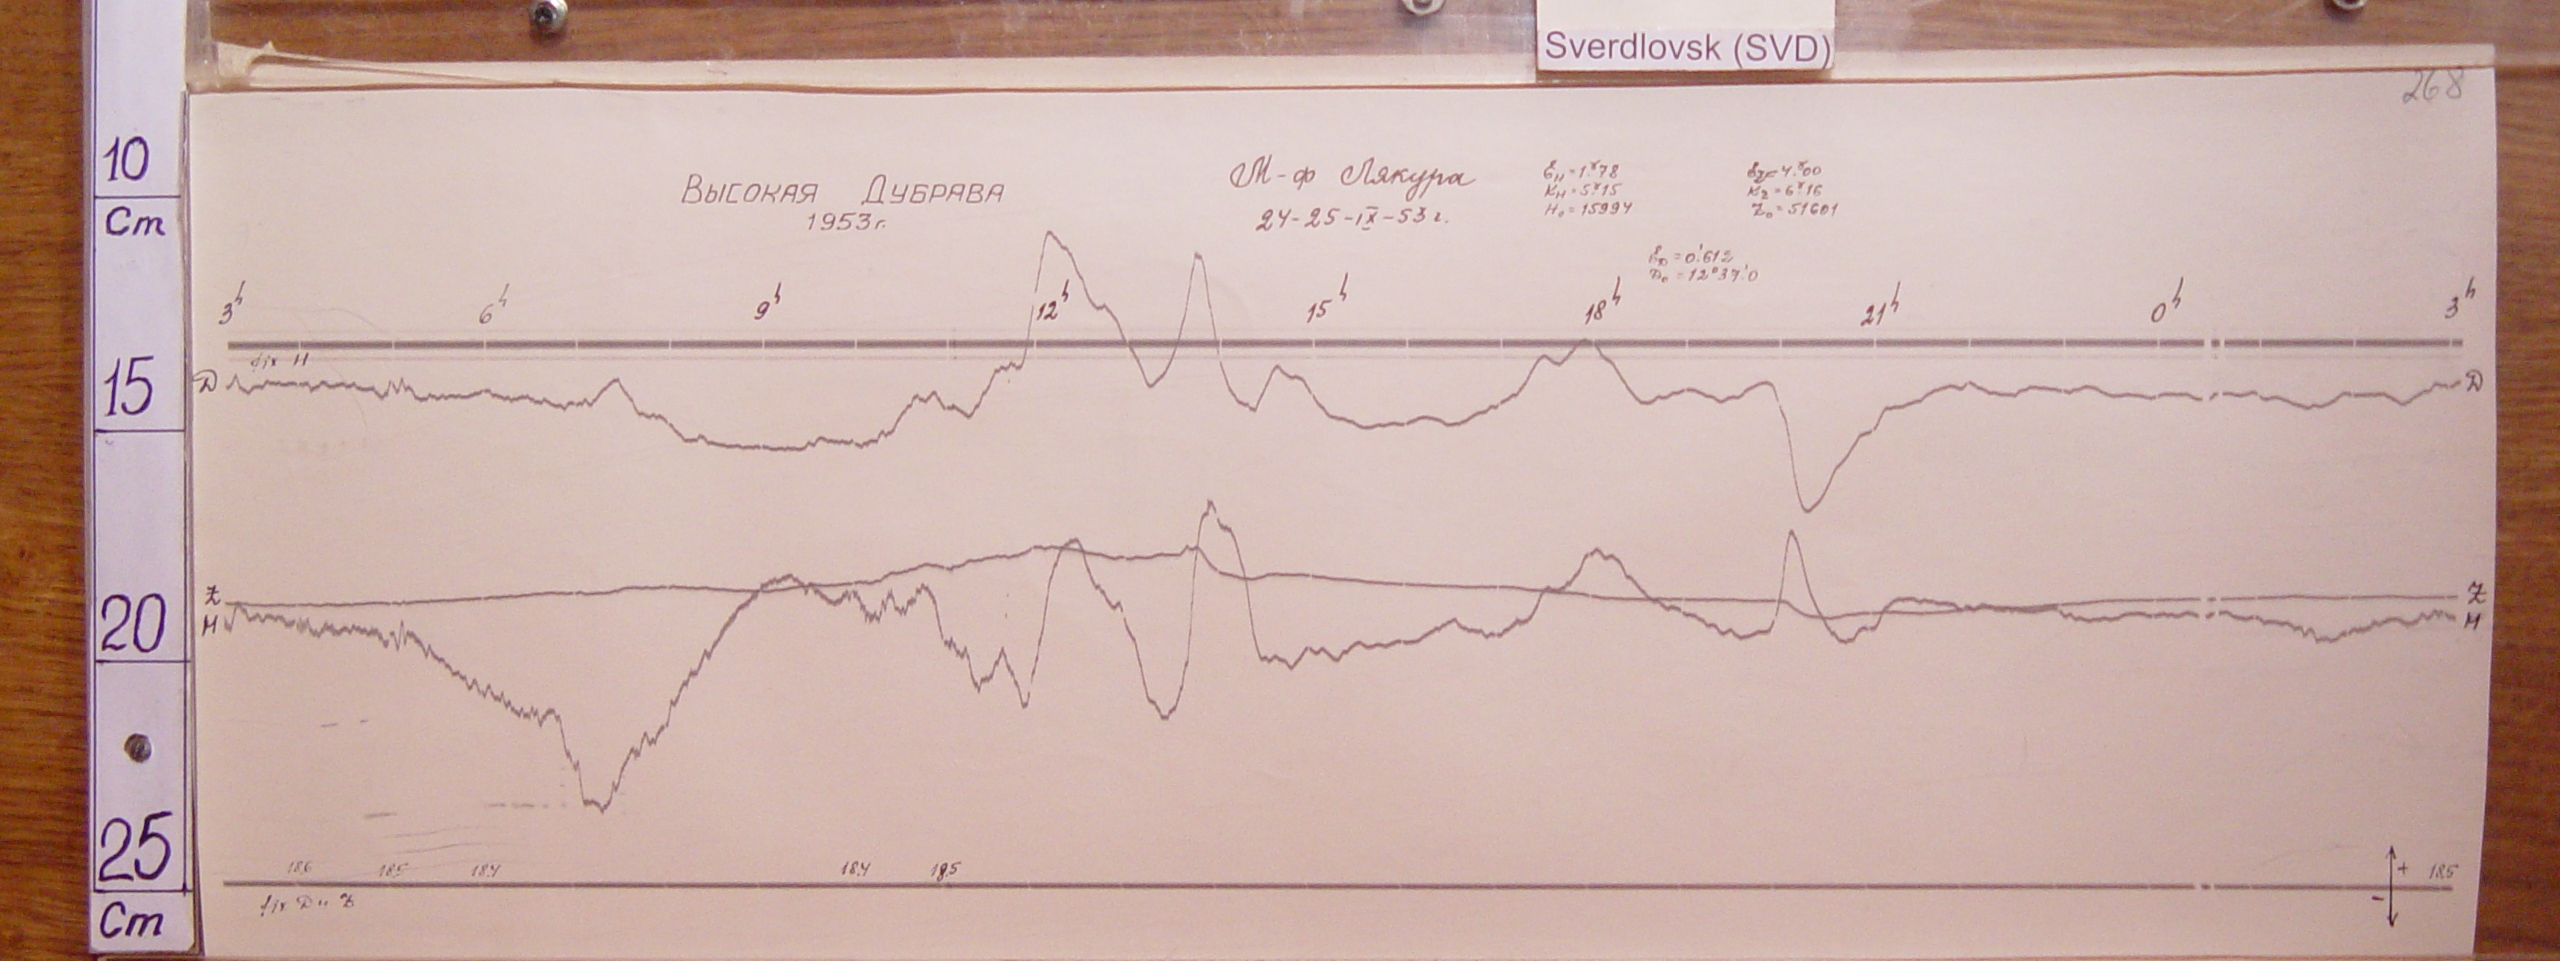 Sverdlovsk (SVD)
268
10
Cm
15
20
25
Cm
ВЫСОКАЯ ДУБРАВА
1953г.
М-ф Лякура
24-25-IX-53 г.
Ɛн=1.ˠ78
Kн=5.ˠ15
H₀=15994
Ɛz=4.ˠ00
Kz=6ˠ16
Z₀=51601
ƐD=0.'612
D₀=12°37.'0
3h 6h 9h 12h 15h 18h 21h 0h 3h
fix H
D D
Z Z
H H
18.6 18.5 18.4 18.4 18.5 18.5
+
-
fix D и Z